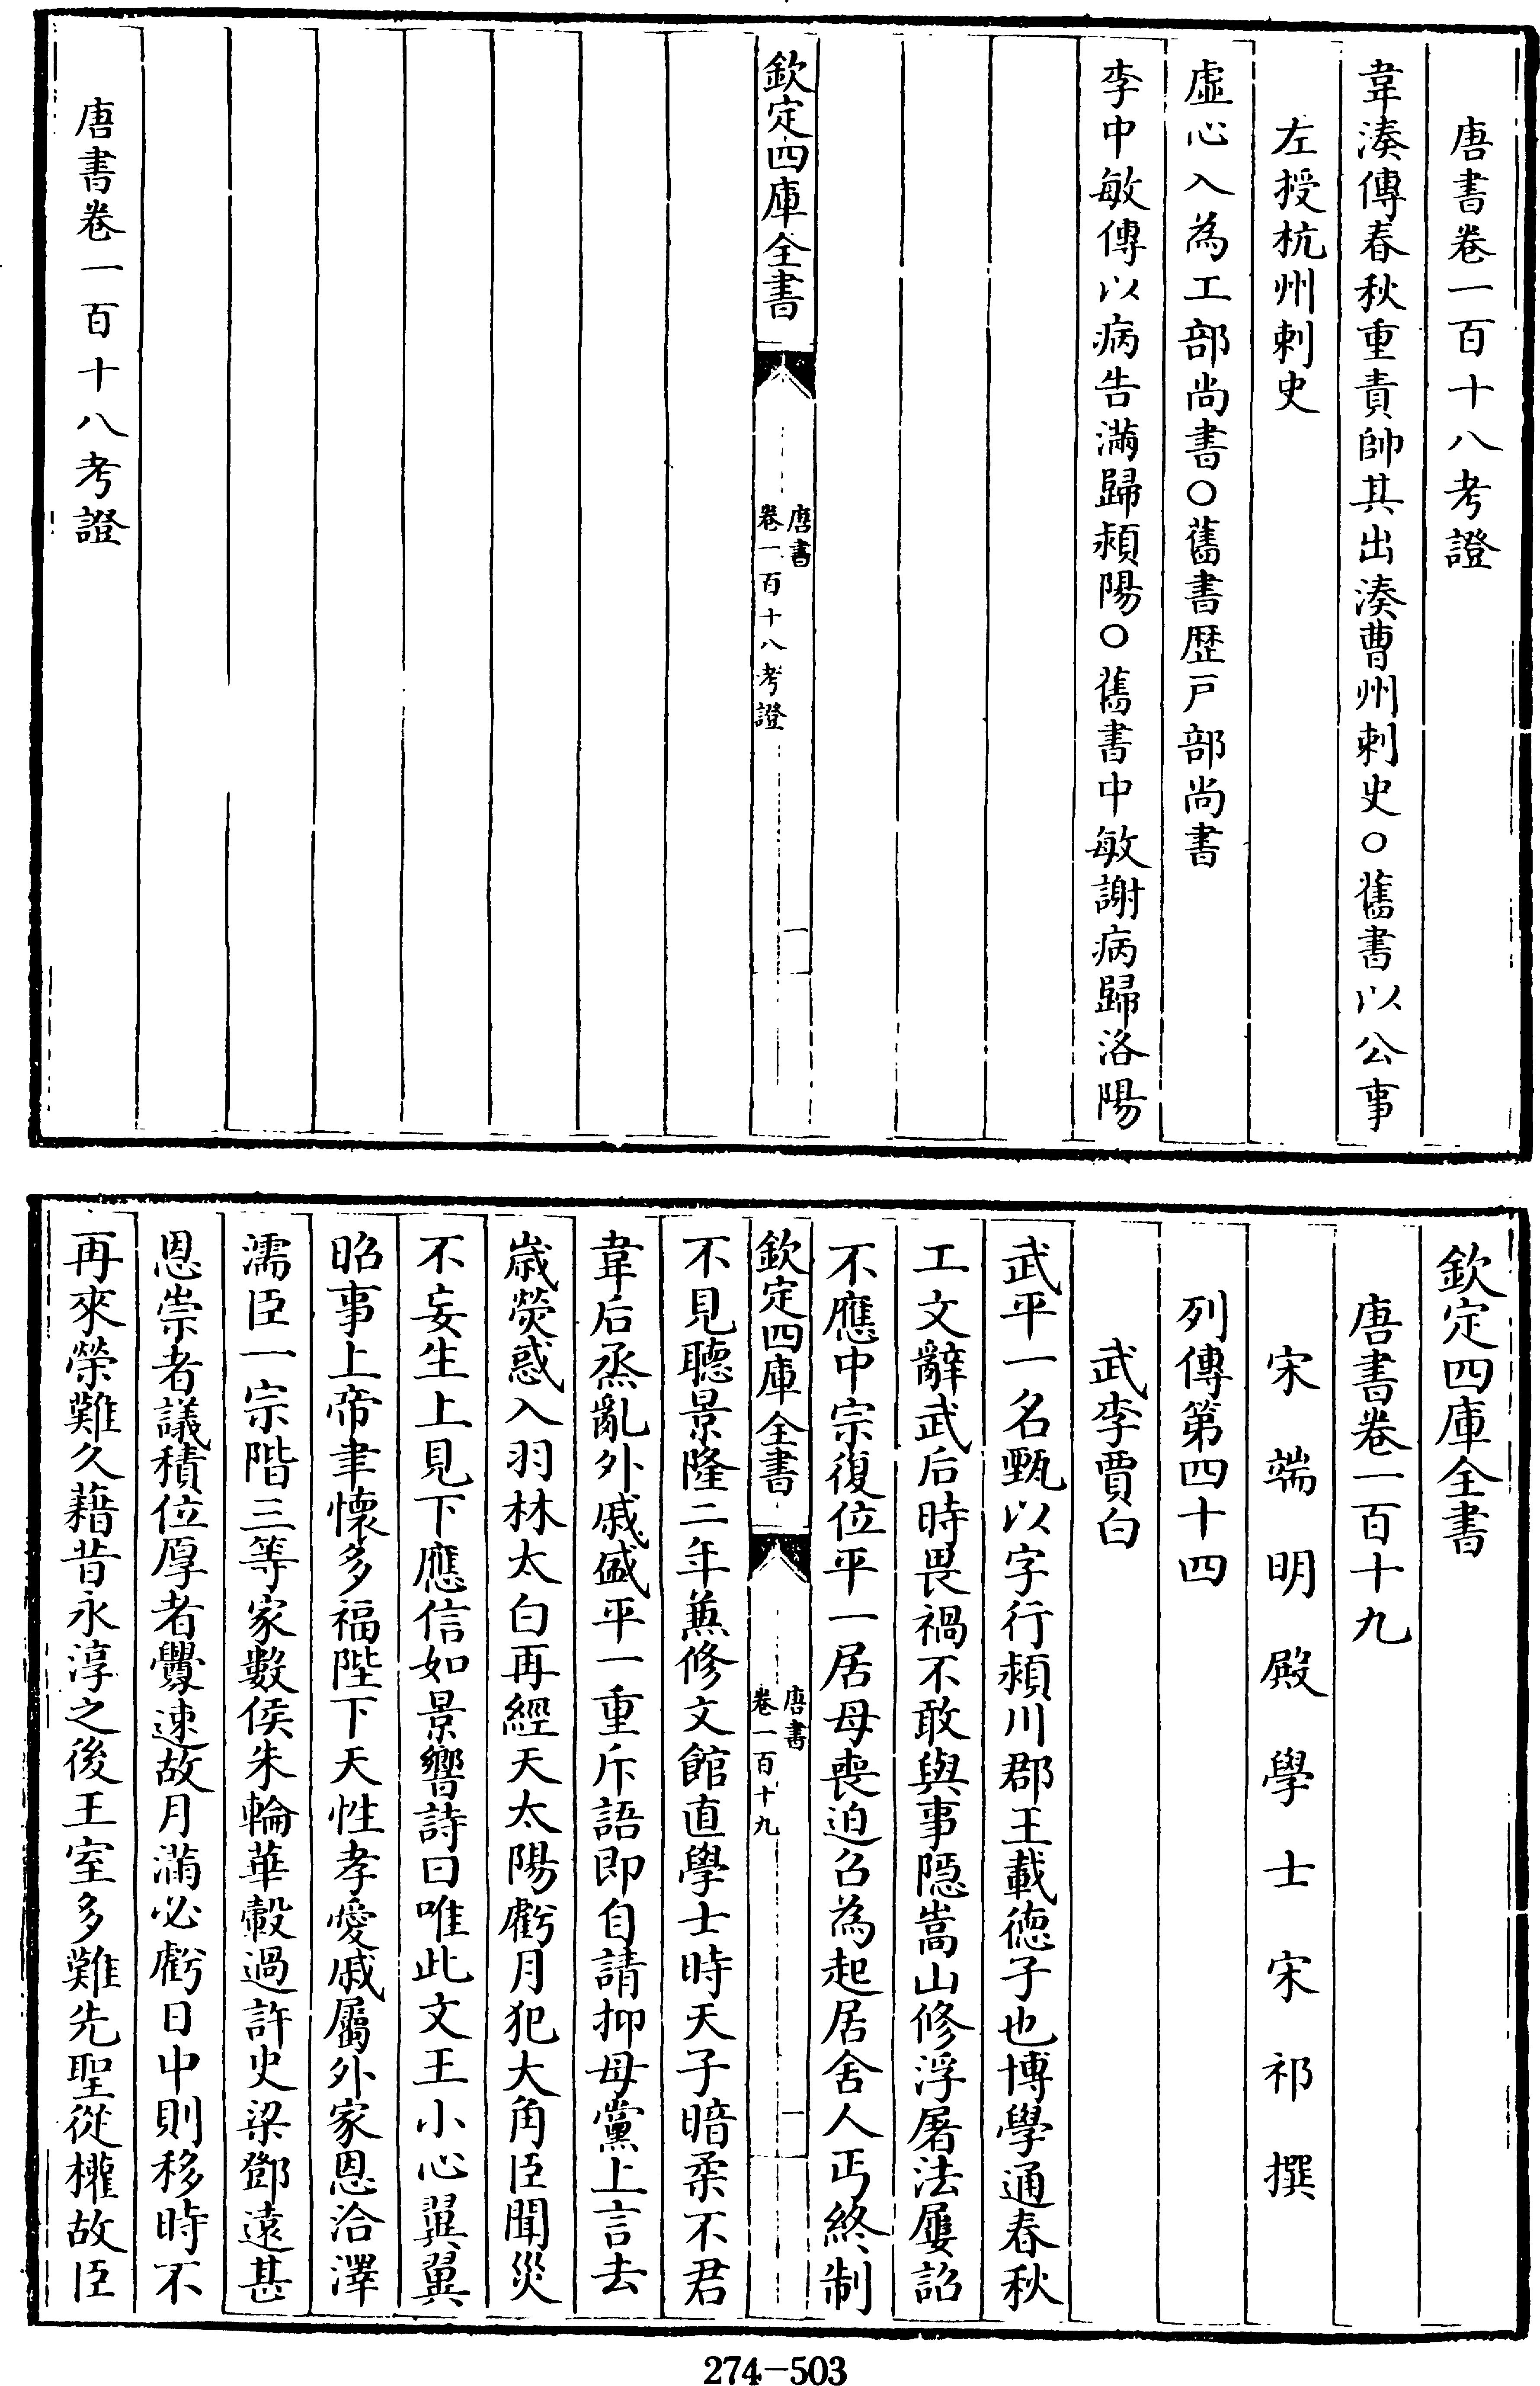 唐書卷一百十八考證
韋湊傳春秋重責帥其出湊曹州刺史○舊書以公事
左授杭州刺史
虛心入為工部尚書○舊書歷戸部尚書
李中敏傳以病告滿歸潁陽○舊書中敏謝病歸洛陽
欽定四庫全書
唐書
卷一百十八考證
一
唐書卷一百十八考證
欽定四庫全書
唐書卷一百十九
宋端明殿學士宋祁撰
列傳第四十四
武李賈白
武平一名甄以字行潁川郡王載德子也博學通春秋
工文辭武后時畏禍不敢與事隱嵩山修浮屠法屢詔
不應中宗復位平一居母喪迫召為起居舍人丐終制
欽定四庫全書
唐書
卷一百十九
一
不見聽景隆二年兼修文館直學士時天子暗柔不君
韋后烝亂外戚盛平一重斥語即自請抑母黨上言去
歳熒惑入羽林太白再經天太陽虧月犯大角臣聞災
不妄生上見下應信如景響詩曰唯此文王小心翼翼
昭事上帝聿懷多福陛下天性孝愛戚屬外家恩洽澤
濡臣一宗階三等家數侯朱輪華轂過許史梁鄧遠甚
恩崇者議積位厚者釁速故月滿必虧日中則移時不
再來榮難久藉昔永淳之後王室多難先聖從權故臣
274-503